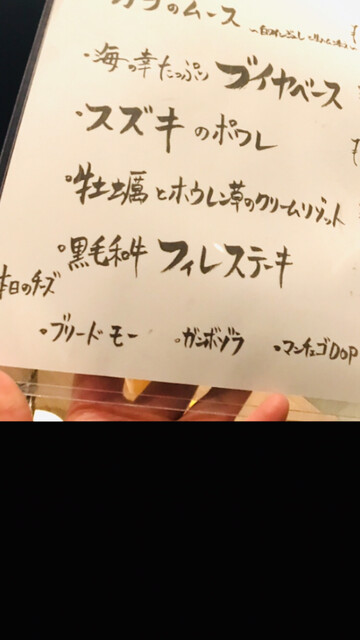 のムース
・海の幸たっぷり ブイヤベース
・スズキのポワレ
・牡蠣とホウレン草のクリームリゾット
・黒毛和牛 フィレステーキ
本日のチーズ
・ブリードモー ・ガンボゾラ ・マンチェゴDOP